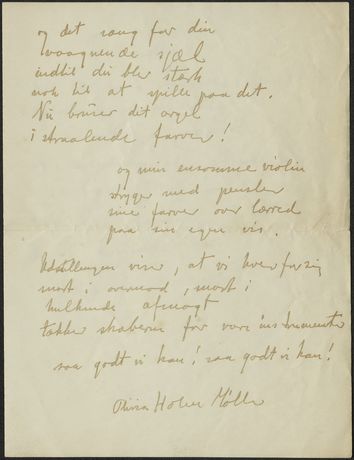 og det sang for din
vaagnende sjæl
indtil du blev stærk
nok til at spille paa det.
Nu bruser dit orgel
i straalende farver!
og min ensomme violin
stryger med penslen
sine farver over lærred
paa sin egen vis.
Udstillingen viser, at vi hver for sig
mest i overmod, mest i
hulkende afmagt
takker skaberen for vore instrumenter
saa godt vi kan! saa godt vi kan!
Olivia Holm Møller